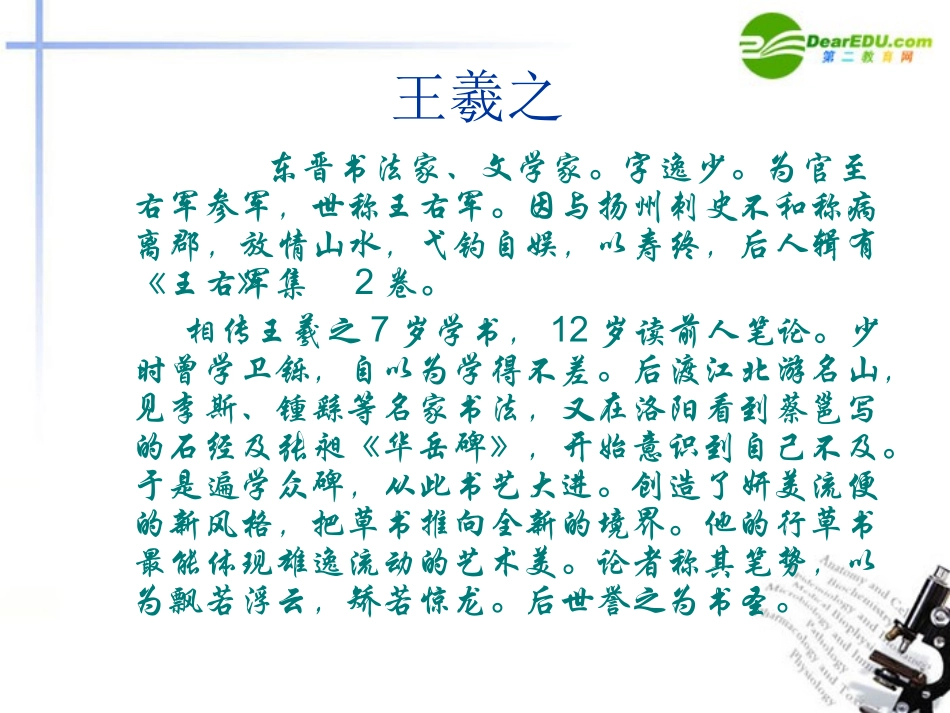 DearEDU.com
第二教育网
王羲之
东晋书法家、文学家。字逸少。为官至
右军参军，世称王右军。因与扬州刺史不和称病
离郡，放情山水，弋钓自娱，以寿终，后人辑有
《王右军》集 2 卷。
相传王羲之 7 岁学书， 12 岁读前人笔论。少
时曾学卫铄，自以为学得不差。后渡江北游名山，
见李斯、锺繇等名家书法，又在洛阳看到蔡邕写
的石经及张昶《华岳碑》，开始意识到自己不及。
于是遍学众碑，从此书艺大进。创造了妍美流便
的新风格，把草书推向全新的境界。他的行草书
最能体现雄逸流动的艺术美。论者称其笔势，以
为飘若浮云，矫若惊龙。后世誉之为书圣。
Anatomy and
Biochemistry
Microbiology and
Medical Biophysi
Pharmacology and
Pathology
Physiology